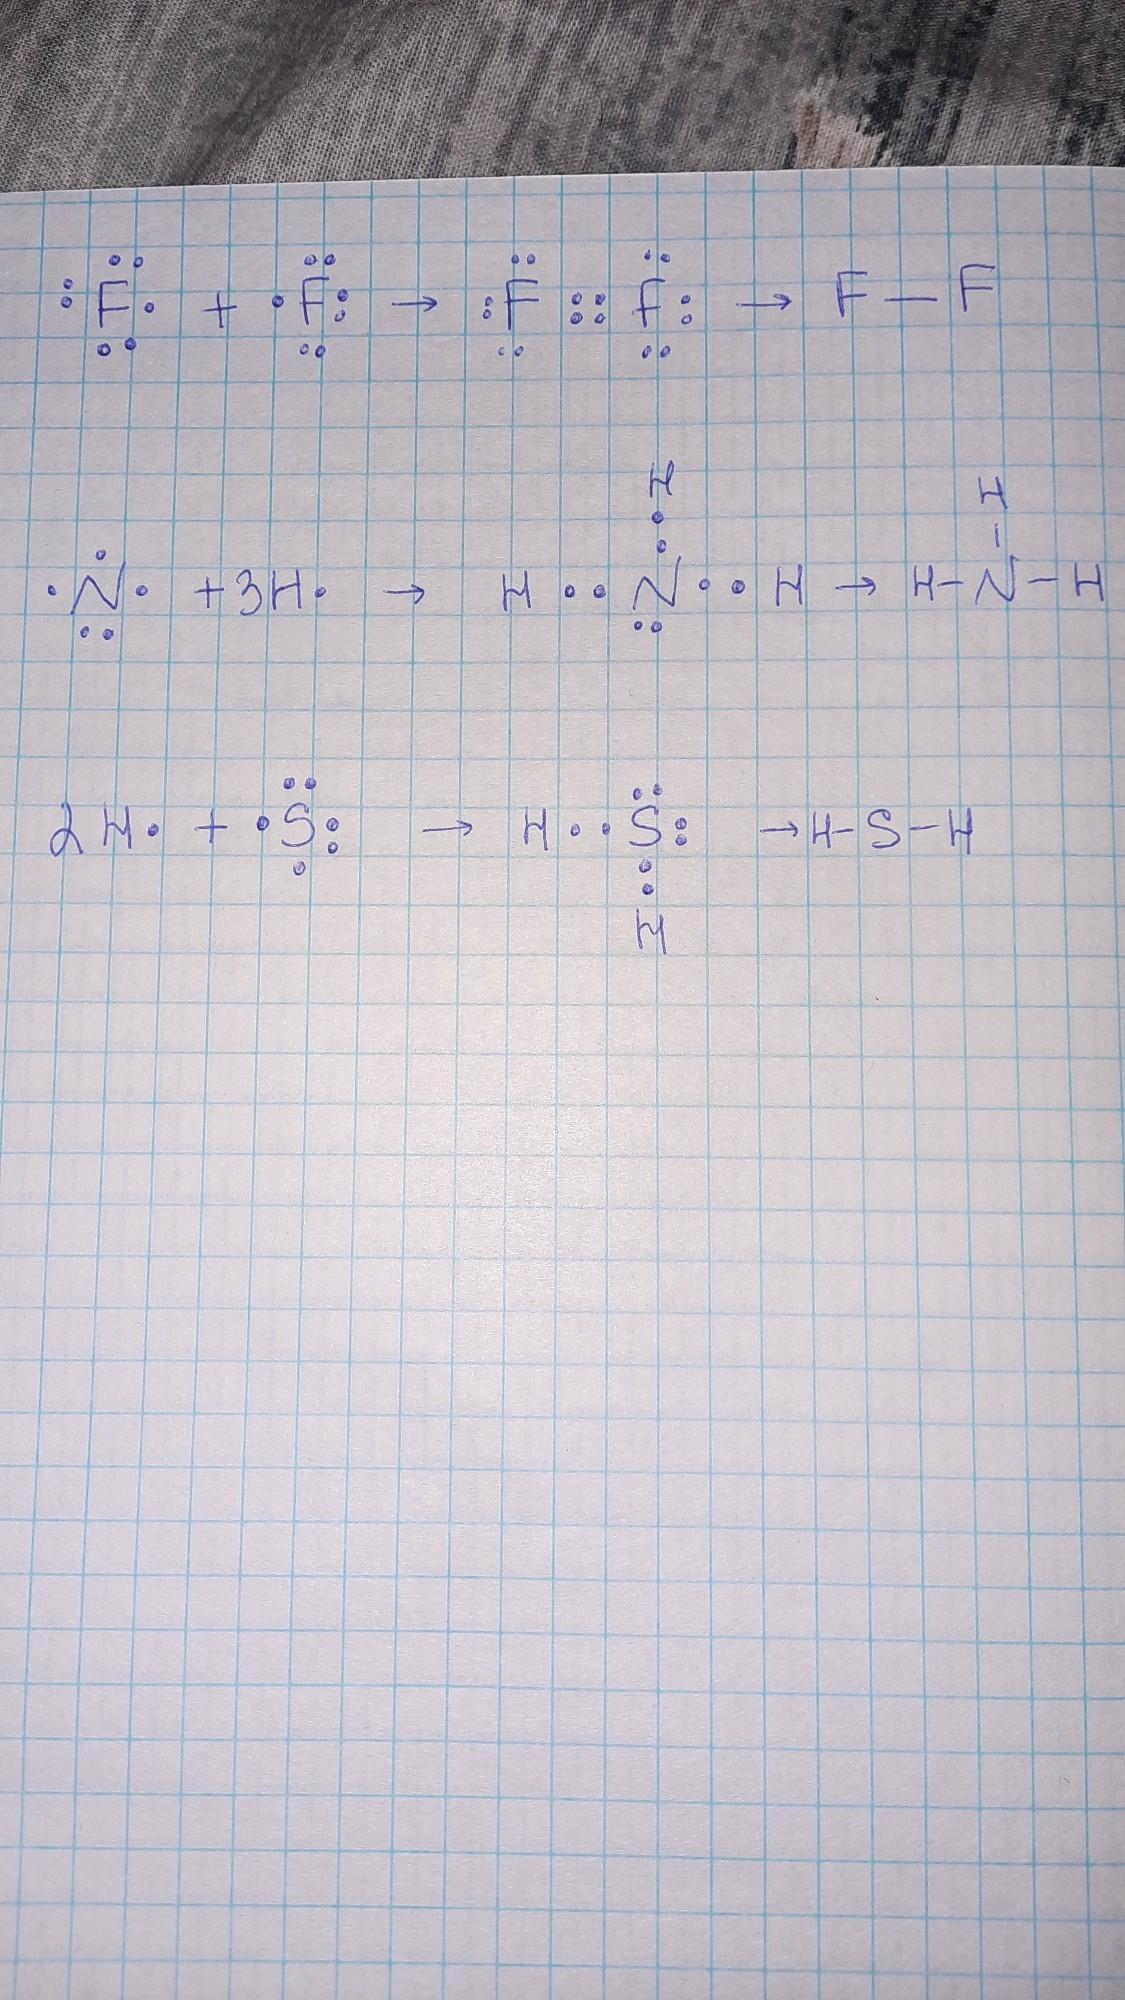 :F· + ·F: → :F :: F: → F — F
H
H
·N· + 3H· → H ·· N ·· H → H - N - H
2H· + ·S: → H ·· S: → H - S - H
H